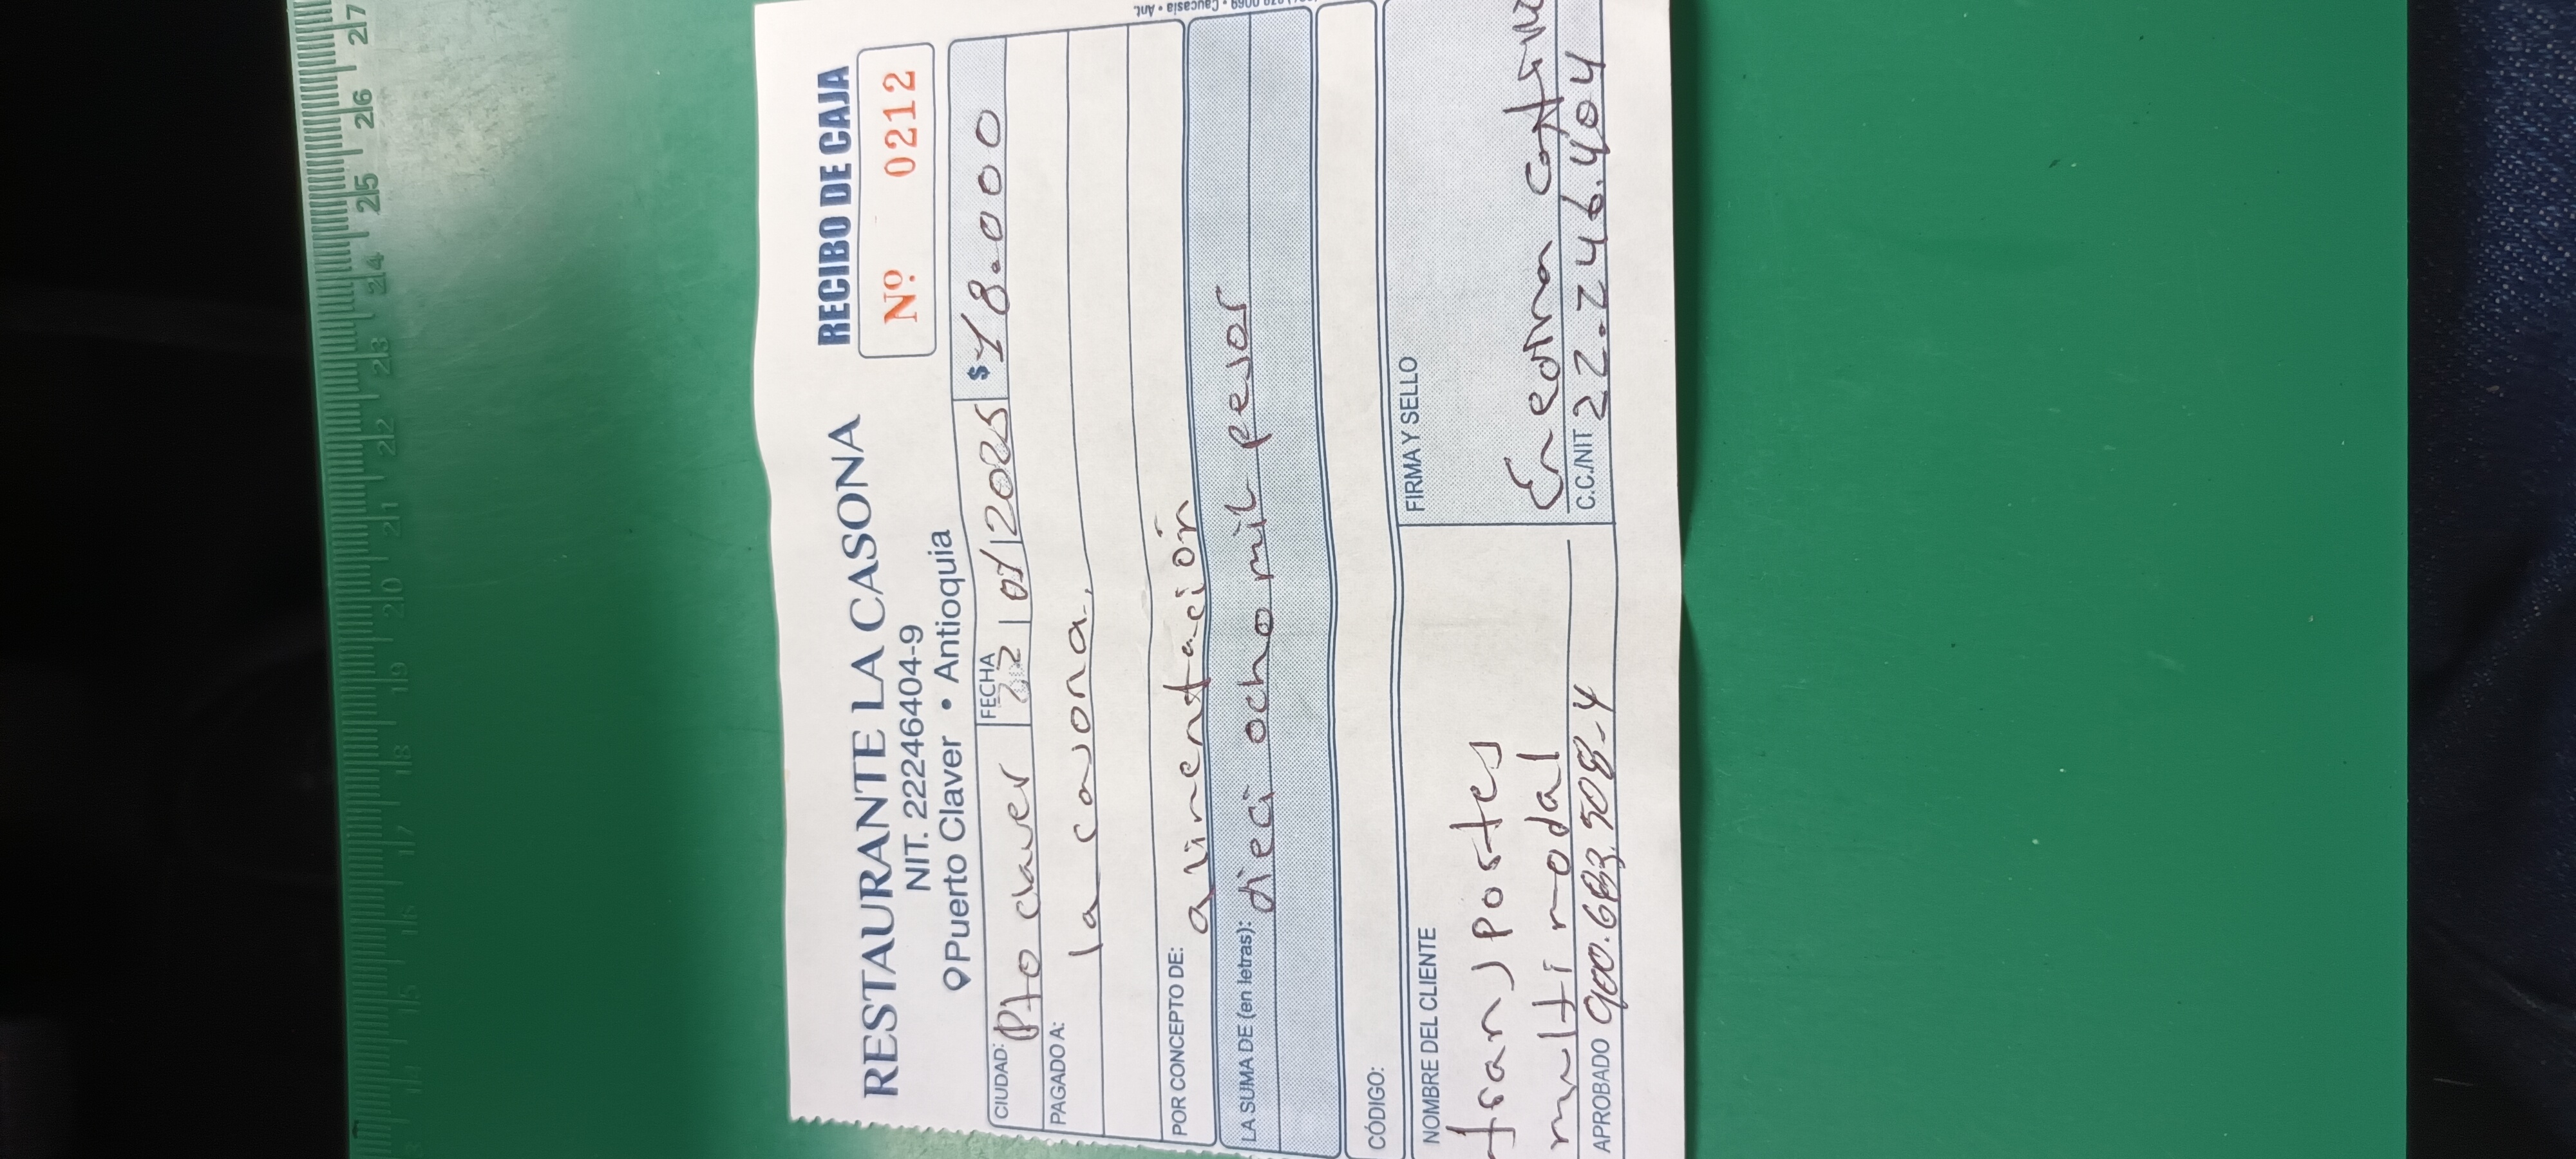 RESTAURANTE LA CASONA
NIT. 22246404-9
Puerto Claver • Antioquia
RECIBO DE CAJA
Nº. 0212
CIUDAD: Pto claver FECHA 22 01 2025 $ 18.000
PAGADO A:
la casona.
POR CONCEPTO DE:
alimentación
LA SUMA DE (en letras):
dieci ocho mil pesos
CÓDIGO:
NOMBRE DEL CLIENTE
transpostes
multi modal
APROBADO 900.683.508-4
FIRMA Y SELLO
C.C./NIT 22.246.404
Caucasia • Ant.
14 15 16 17 18 19 20 21 22 23 24 25 26 27